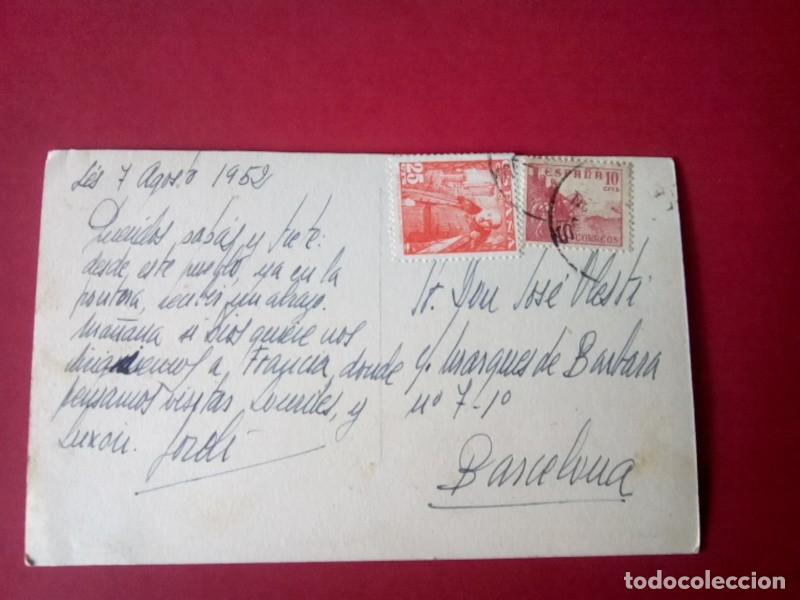 Lés 7 Agosto 1952
Queridos papás y tete:
desde este pueblo, ya en la
frontera, recibir un abrazo.
Mañana si Dios quiere nos
dirigiremos a Francia, donde
pensamos visitar Lourdes, y
Luxon. Jordi
25
CTS
ESPAÑA 10
CTS
CORREOS
Sr. Don José
c/. Marques de Barbara
nº 7-1º
Barcelona
todocoleccion
todocoleccion.net